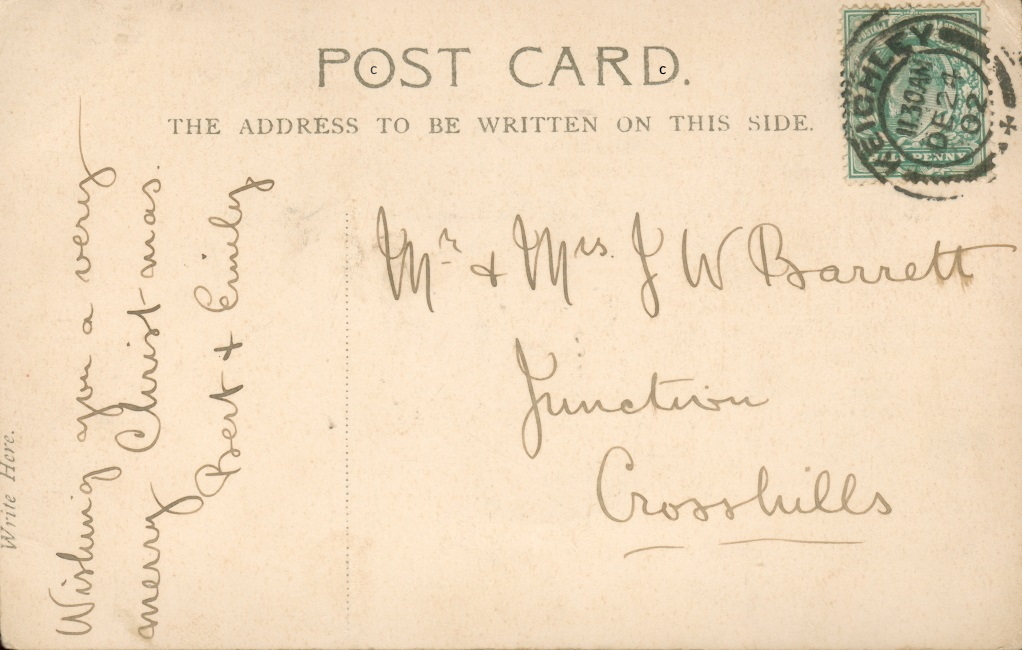 POST CARD.
c
c
THE ADDRESS TO BE WRITTEN ON THIS SIDE.
KEIGHLEY
11.30AM
DE 24
02
HALFPENNY
Write Here.
Wishing you a very
merry Christmas.
Bert + Emily
Mr & Mrs. J W Barrett
Junction
Crosshills